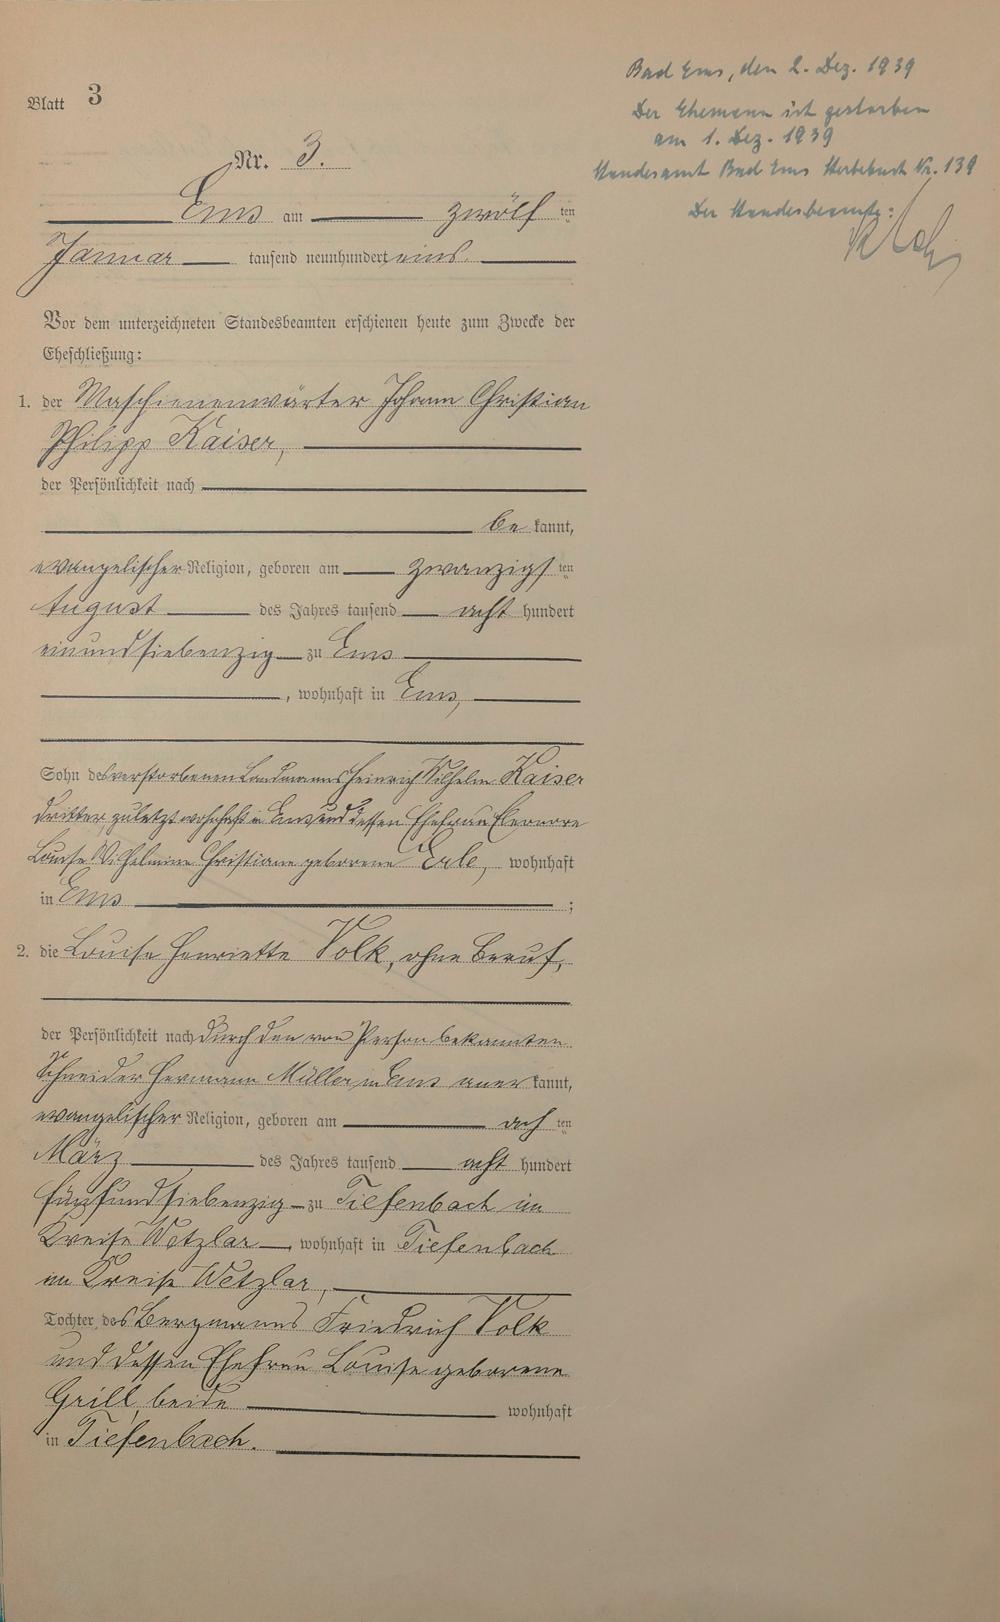 Blatt 3
Bad Ems, den 2. Dez. 1939
Der Ehemann ist gestorben
am 1. Dez. 1939
Standesamt Bad Ems Sterbebuch Nr. 139
Der Standesbeamte:
Nr. 3.
Ems am zwölf ten
Januar tausend neunhundert eins.
Vor dem unterzeichneten Standesbeamten erschienen heute zum Zwecke der
Eheschließung:
1. der Maschienenwärter Johann Christian
Philipp Kaiser,
der Persönlichkeit nach
be kannt,
evangelischer Religion, geboren am zwanzigs ten
August des Jahres tausend acht hundert
einundsiebenzig zu Ems
, wohnhaft in Ems,
Sohn des verstorbenen Landmanns Heinrich Wilhelm Kaiser
dritter, zuletzt wohnhaft in Ems und dessen Ehefrau Eleonore
Louise Wilhelmine Christiane geborene Erle, wohnhaft
in Ems ;
2. die Louise Henriette Volk, ohne Beruf,
der Persönlichkeit nach durch den von Person bekannten
Schneider Hermann Müller in Ems aner kannt,
evangelischer Religion, geboren am ach ten
März des Jahres tausend acht hundert
fünfundsiebenzig zu Tiefenbach im
Kreise Wetzlar, wohnhaft in Tiefenbach
im Kreise Wetzlar,
Tochter des Bergmanns Friedrich Volk
und dessen Ehefrau Louise geborene
Grill, beide wohnhaft
in Tiefenbach.